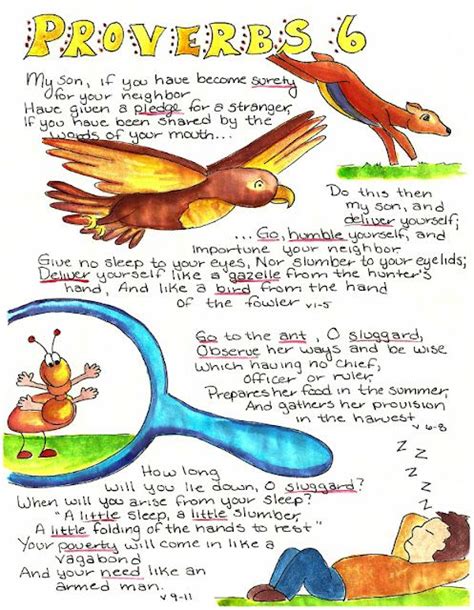 PROVERBS 6
My son, if you have become surety
for your neighbor
Have given a pledge for a stranger,
If you have been snared by the
words of your mouth...
Do this then
my son, and
deliver yourself;
... Go, humble yourself, and
Importune your neighbor
Give no sleep to your eyes, Nor slumber to your eyelids;
Deliver yourself like a gazelle from the hunter's
hand, And like a bird from the hand
of the fowler v1-5
Go to the ant, O sluggard,
Observe her ways and be wise
Which having no chief,
officer or ruler,
Prepares her food in the summer,
And gathers her provision
in the harvest
v 6-8
Z
Z
Z
Z
How long
will you lie down, O sluggard?
When will you arise from your sleep?
"A little sleep, a little slumber,
A little folding of the hands to rest"
Your poverty will come in like a
vagabond
And your need like an
armed man. v 9-11